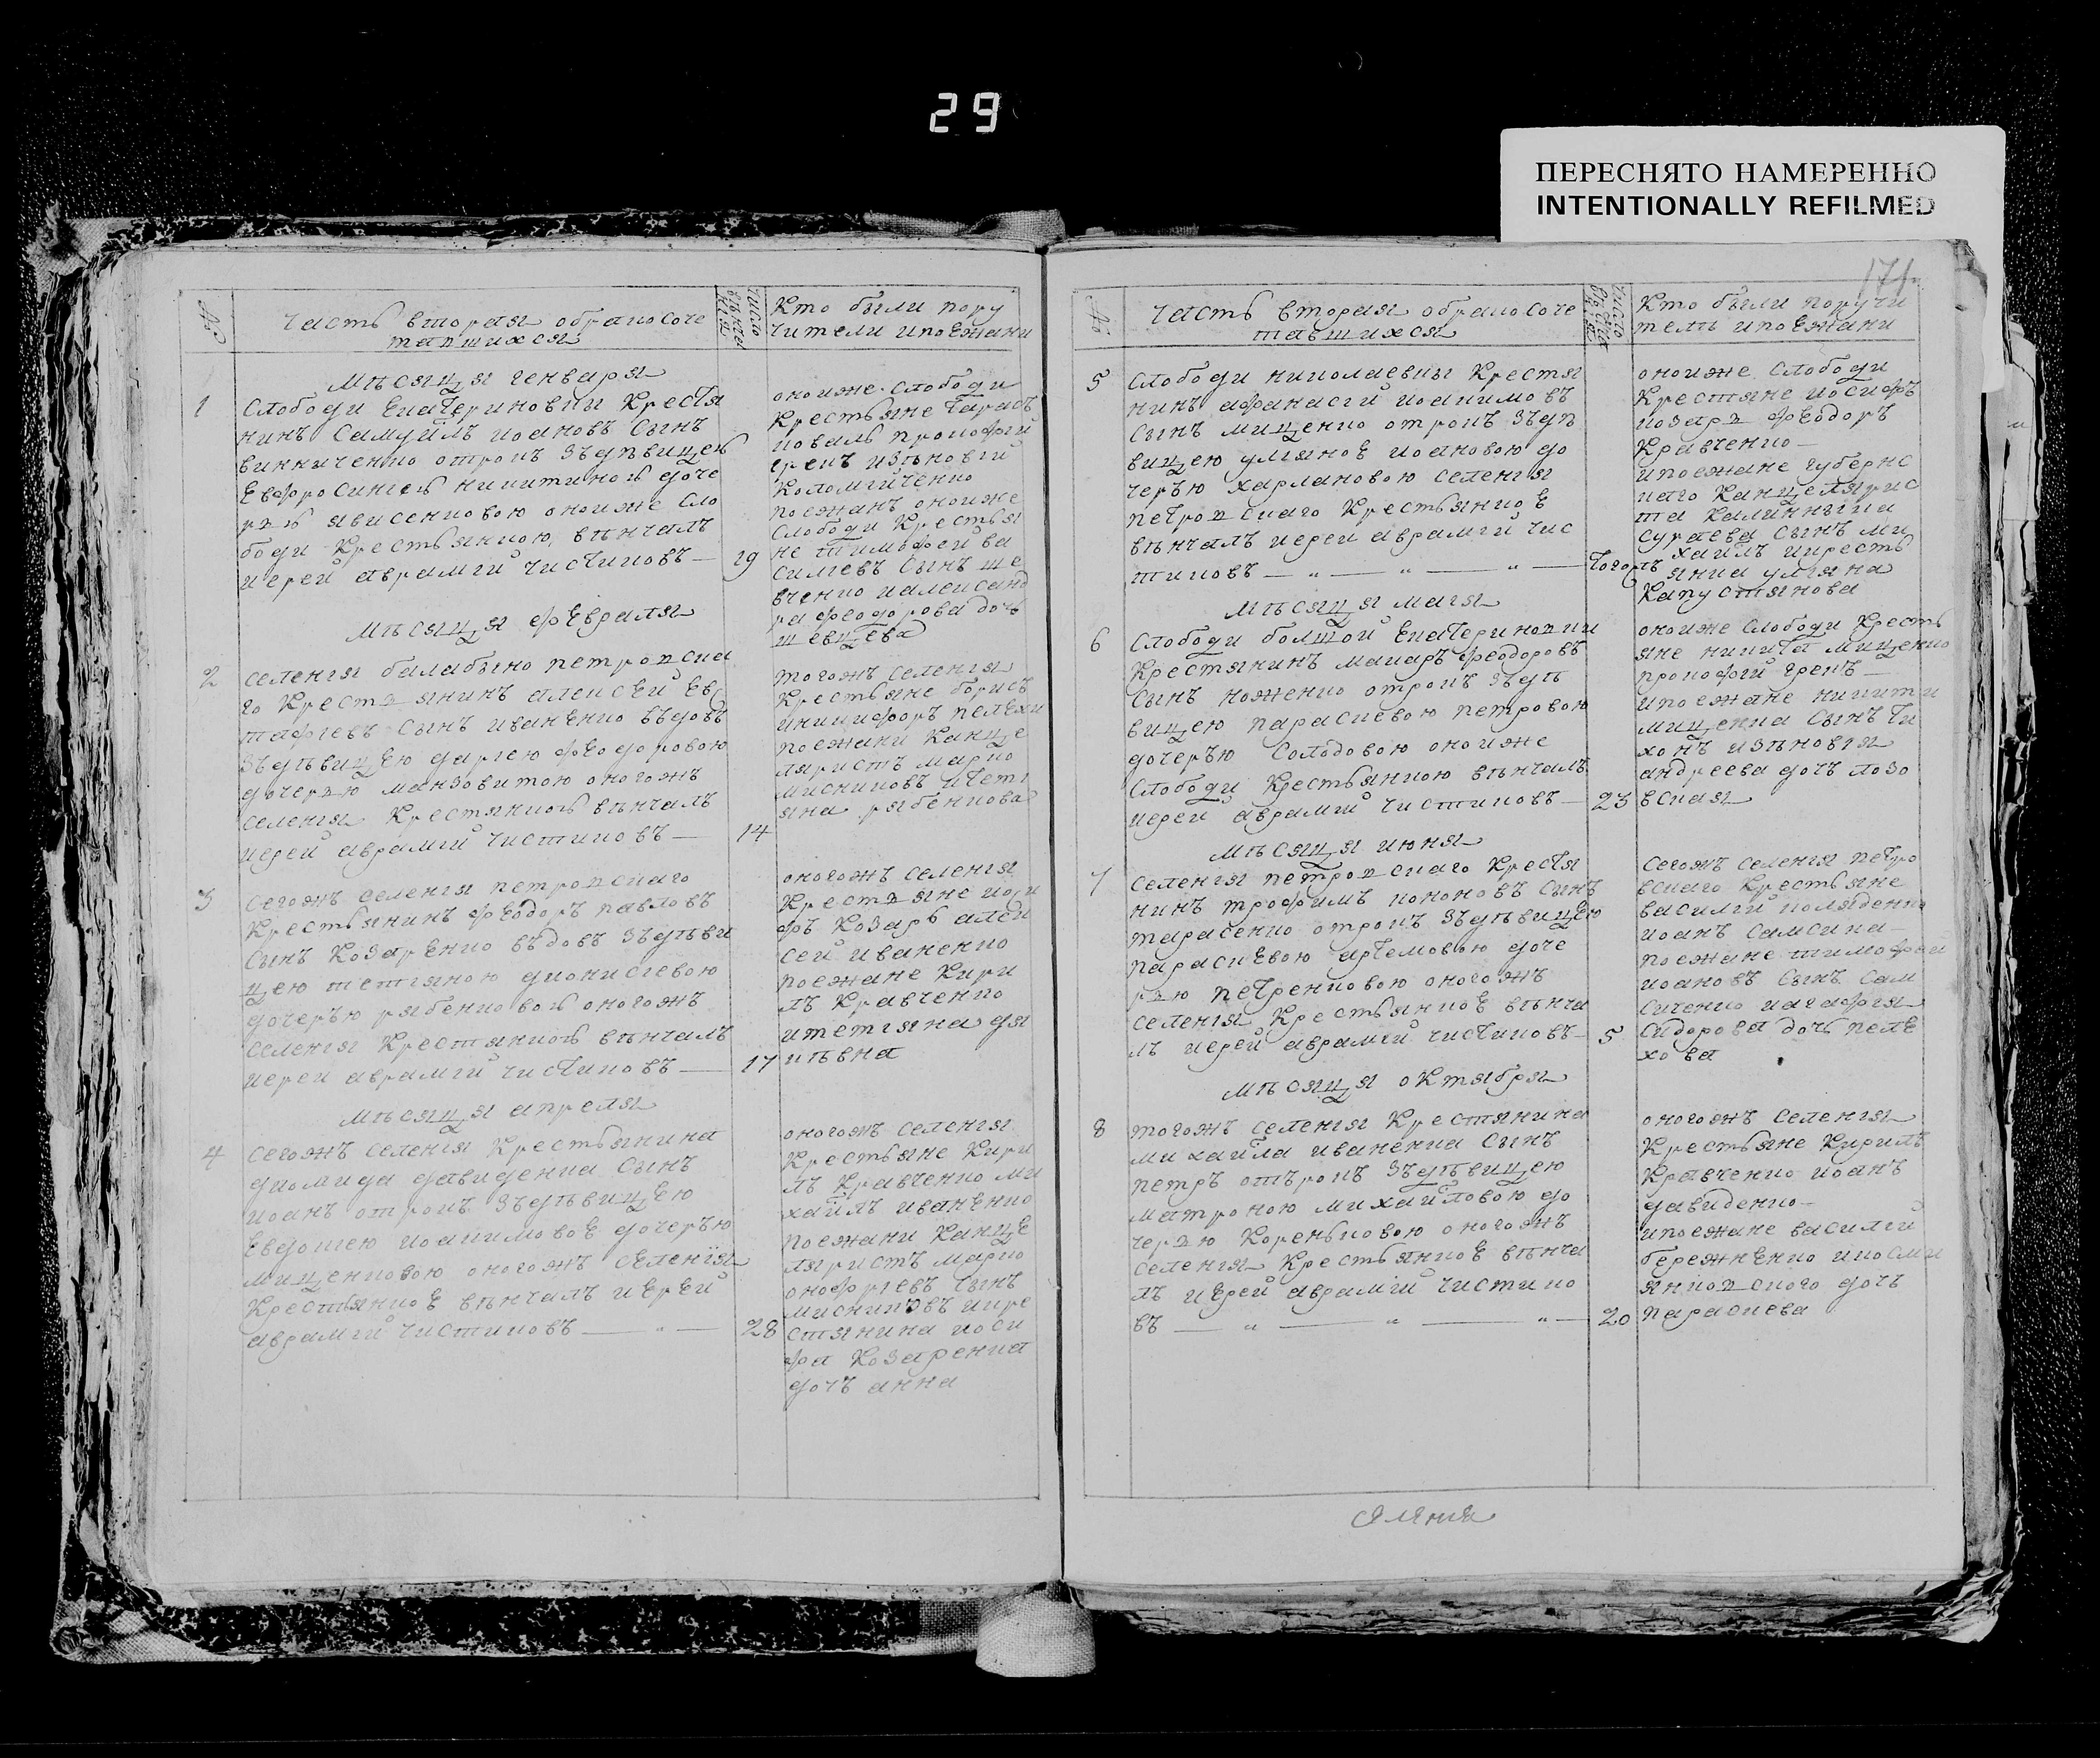 29
ПЕРЕСНЯТО НАМЕРЕННО
INTENTIONALLY REFILMED
171
№
часть вторая обракосоче
тавшихся
число
Кто были пору
чители ипоезжани
мѣсяця генваря
1
Слободи Екатериновки Крестя
нинъ Самуйлъ иоановъ Сынъ
винниченко отрокъ Здѣвицею
Евфросинiею никитиною доче
рью явисенковою оноиже Сло
боди Крестьянкою, вѣнчалъ
иерей аврамiй чистиковъ —
19
оноиже Слободи
Крестьяне Тарасъ
коваль прокофiй
грекъ изѣновiй
Коломiйченко
поезжанъ оноиже
Слободи Крестья
не тимофей ва
силиевъ Сынъ ше
вченко иалександ
ра феодорова дочь
шевцева
мѣсяця февраля
2
селенiя балабыно петровска
го Крестьянинъ алексей Ев
тафiевъ Сынъ иваненко вдовъ
Здѣвицею дариею феодоровою
дочерью манзовитою оногожъ
селенiя Крестянкою вѣнчалъ
иерей аврамiй чистиковъ —
14
тогожъ селенiя
Крестьяне борисъ
иникифоръ пелехи
поезжани Канце
ляристъ марко
мисниковъ итетi
яна рябенкова
3
сегожъ селенiя петровскаго
Крестьянинъ феодоръ павловъ
Сынъ Козаренко вдовъ Здѣви
цею тетяною дионисiевою
дочерью рябенковою оногожъ
селенiя Крестянкою вѣнчалъ
иереи аврамiй чистиковъ —
17
оногожъ селенiя
Крестьяне иоси
фъ Козарь алек
сей иваненко
поезжане Кири
лъ Кравченко
итетiяна дя
кѣвна
мѣсяця апреля
4
сегожъ селенiя Крестьянина
диомида давиденка Сынъ
иоанъ отрокъ Здѣвицею
Евдокiею иоакимовою дочерью
мищенковою оногожъ селенiя
Крестьянкоє вѣнчалъ иерей
аврамiй чистиковъ — " —
28
оногожъ селенiя
Крестьяне Кири
лъ Кравченко ми
хайлъ иваненко
поезжани Канце
ляристъ марко
онофрiевъ Сынъ
мисниковъ икре
стянина иоси
фа Козаренка
дочъ анна
№
часть вторая обракосоче
тавшихся
число
Кто были поручи
тель ипоезжани
5
Слободи николаевки Крестя
нинъ афанасiй иоакимовъ
сынъ мищенко отрокъ Здѣ
вицею улiяноє иоановою до
черъю харлановою селенiя
петровскаго Крестьянкоє
вѣнчалъ иереи аврамiй чис
тиковъ — " — " — " —
Тогожъ
оноиже Слободи
Крестяне иосифъ
козарь феодоръ
Кравченко —
ипоезжане губернс
каго Канцелярис
та Калинника
сураева Сынъ ми
хайлъ икресть
янка улiяна
Капустянова
мѣсяця маiя
6
Слободи болшой Екатериновки
Крестянинъ макаръ феодоровъ
Сынъ ноженко отрокъ Здѣ
вицею параскевою петровою
дочерью Солодовою оноиже
Слободи Крестьянкою вѣнчалъ
иерей аврамiй чистиковъ —
23
оноиже Слободи Кресть
яне никита мищенко
прокофiй грекъ —
ипоезжане никити
мищенка Сынъ Ти
хонъ изѣновiя
андреева дочъ лозо
вская
мѣсяця июня
7
Селенiя петровскаго Крестя
нинъ трофимъ кононовъ Сынъ
тарасенко отрокъ Здѣвицею
параскевою артемовою доче
рью петренковою оногожъ
селенiя Крестьянкоє вѣнча
лъ иерей аврамiй чистиковъ —
5
Сегожъ Селенiя петро
вскаго Крестьяне
василiй поляденко
иоанъ Самсика —
поезжане тимофей
иоановъ Сынъ Сам
сиченко иагафiя
Сидорова дочь пеле
хова
мѣсяця октября
8
тогожъ селенiя Крестянина
михайла иваненка Сынъ
петръ отърокъ Здѣвицею
матроною михайловою до
черью Коренковою оногожъ
селенiя Крестьянкоє вѣнча
лъ иерей аврамiй чистико
въ — " — " — " —
20
оногожъ Селенiя
Крестьяне Кирилъ
Кравченко иоанъ
давиденко —
ипоезжане василiй
бережненко
дочъ
параскева